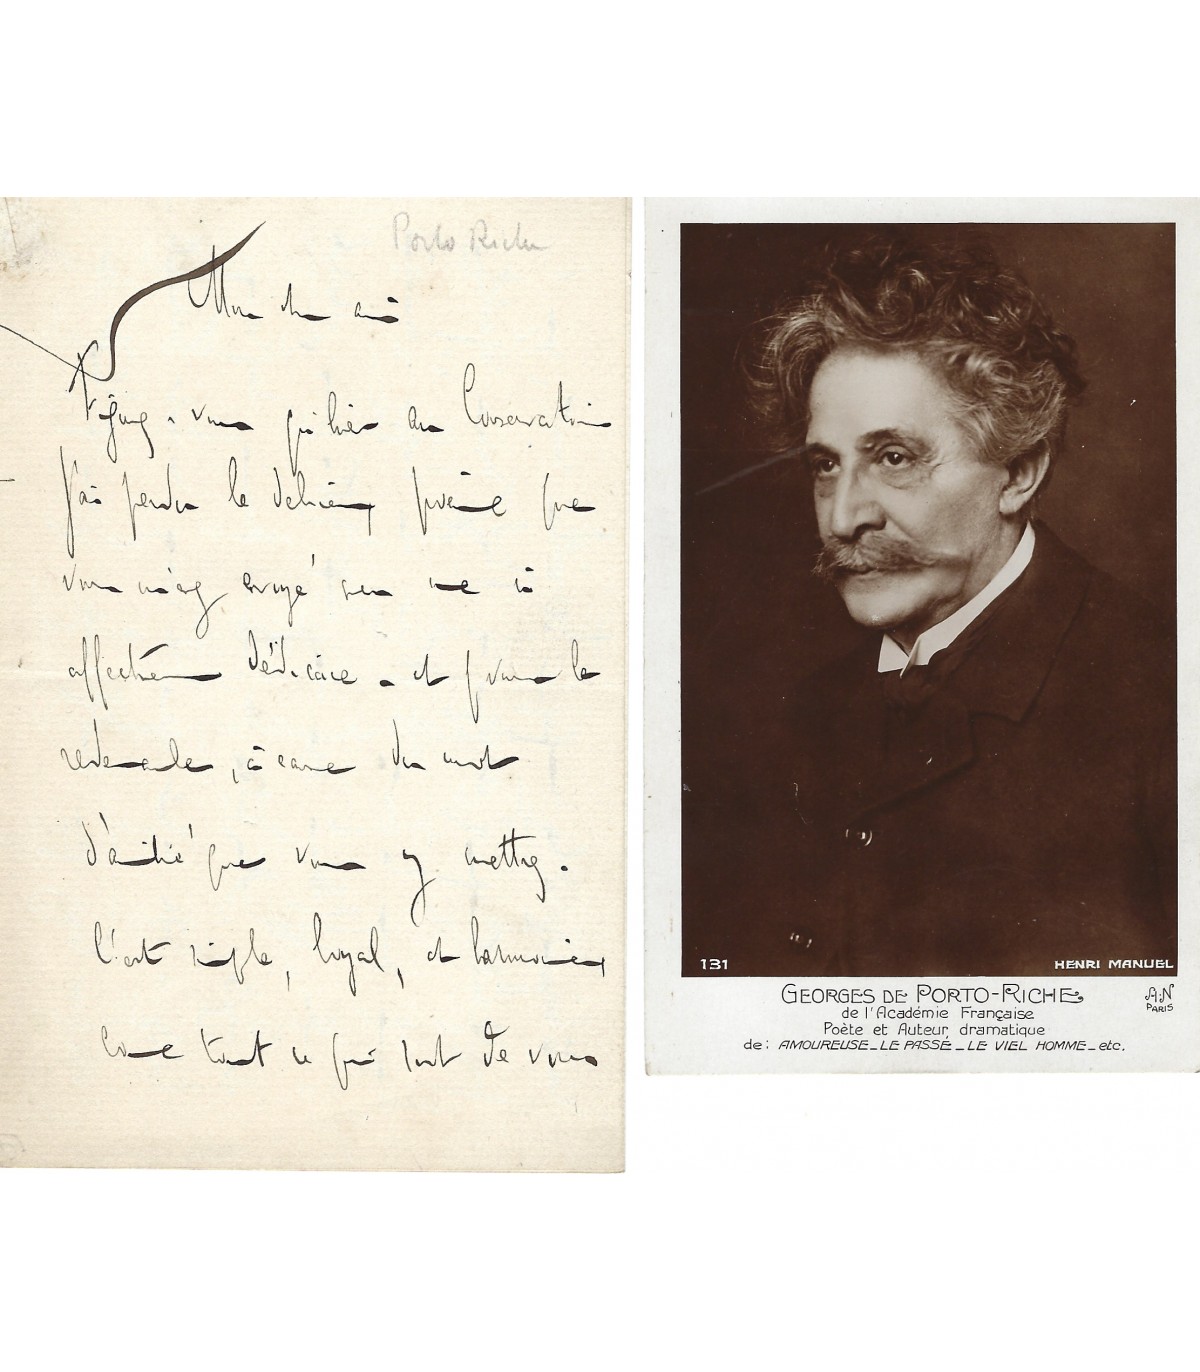 Porto Riche
Mon cher ami
Figurez-vous qu'hier au Conservatoire
J'ai perdu le délicieux poème que
vous m'avez envoyé avec une si
affectueuse dédicace. et je vous le
redemande, à cause du mot
d'amitié que vous y mettrez.
C'est simple, loyal, et harmonieux
comme tout ce qui sort de vous
131
HENRI MANUEL
GEORGES DE PORTO-RICHE
de l'Académie Française
Poète et Auteur dramatique
de: AMOUREUSE_LE PASSÉ_LE VIEL HOMME_etc.
A.N
PARIS